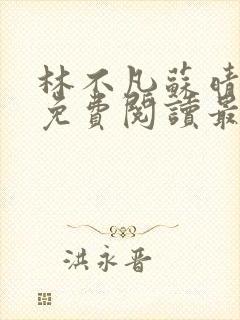 林不凡蘇晴
免費閱讀最
洪永晉